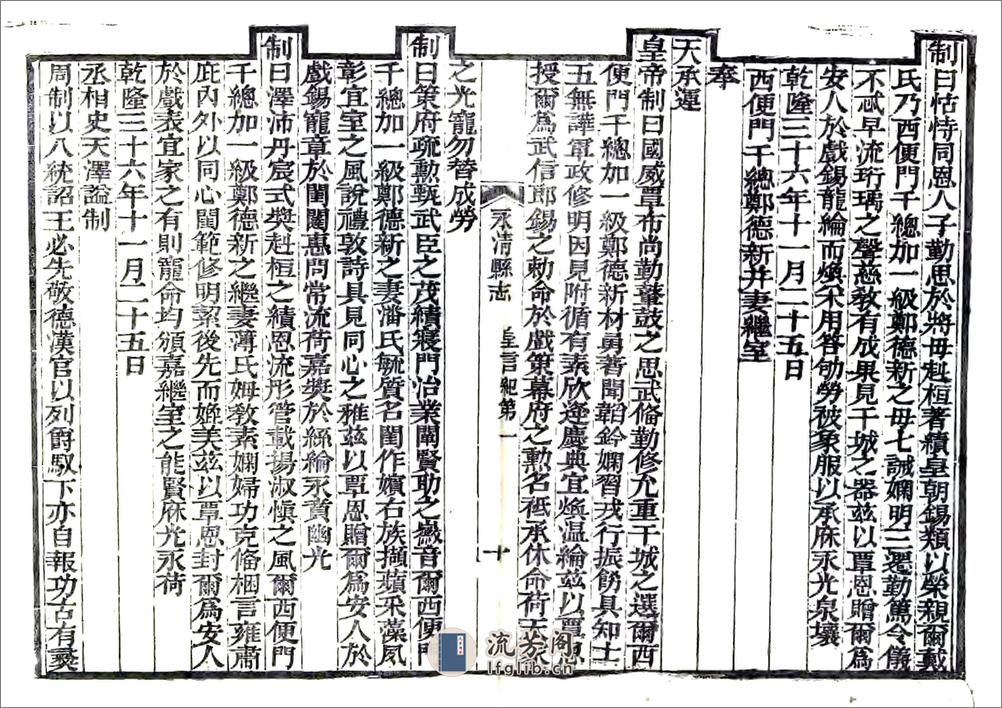 制曰怙恃同恩人子勤思於將母赳桓著績皇朝錫類以榮親爾戴
氏乃西便門千總加一級鄭德新之母七誡嫻明三遷勤篤令儀
不忒早流珩瑀之聲慈教有成果見干城之器茲以覃恩贈爾爲
安人於戲錫龍綸而煥禾用答劬勞被象服以承庥永光泉壤
乾隆三十六年十一月二十五日
西便門千總鄭德新并妻繼室
奉
天承運
皇帝制曰國威覃布尚勤鼙鼓之思武俻勤修允重干城之選爾西
便門千總加一級鄭德新材勇著聞韜鈐嫻習戎行振飭具知士
五無譁軍政修明因見附循有素欣逢慶典宜煥温綸茲以覃恩
授爾爲武信郎錫之勅命於戲策幕府之勲名祗承休命荷天家
永清縣志 皇言紀第一 十
之光寵勿替成勞
制曰策府疏勲甄武臣之茂績寢門治業闡賢助之徽音爾西便門
千總加一級鄭德新之妻潘氏毓質名閨作嬪右族擷蘋采藻夙
彰宜室之風說禮敦詩具見同心之雅茲以覃恩贈爾爲安人於
戲錫寵章於閨闥惠問常流荷嘉奬於絲綸永賁幽光
制曰澤沛丹宸式奬赳桓之績恩流彤管載揚淑愼之風爾西便門
千總加一級鄭德新之繼妻薄氏姆教素嫻婦功克俻梱言雍肅
庇內外以同心閫範修明絜後先而媲美茲以覃恩封爾爲安人
於戲表宜家之有則寵命均頒嘉繼室之能賢庥光永荷
乾隆三十六年十一月二十五日
丞相史天澤謚制
周制以八統詔王必先敬德漢官以列爵馭下亦自報功古有彞
流芳阁
lfglib.cn